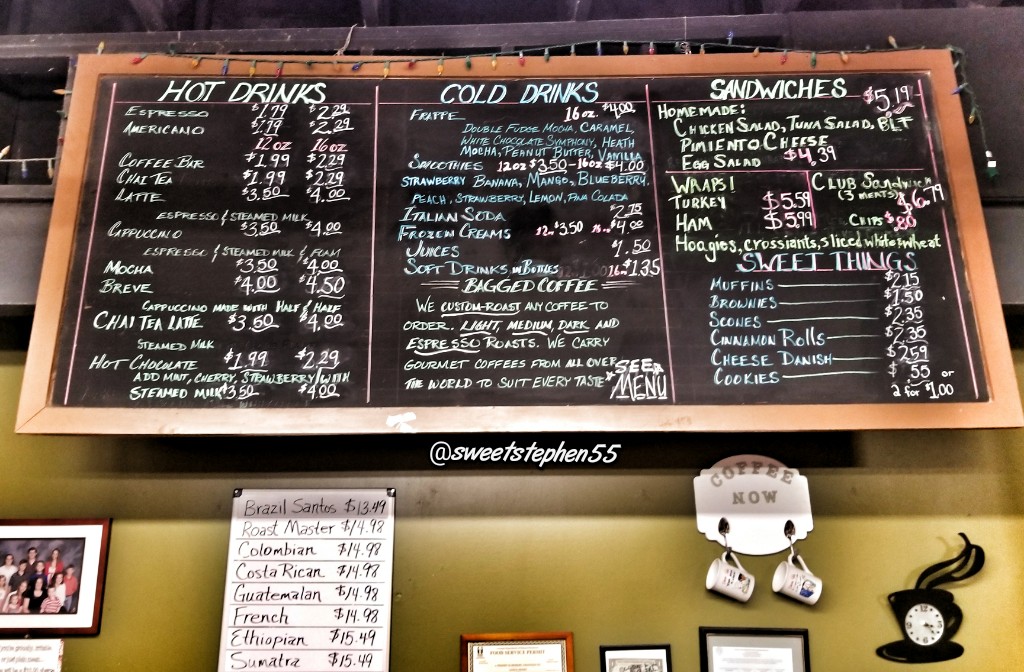 HOT DRINKS
ESPRESSO $1.79 $2.29
AMERICANO $1.79 $2.29
12 oz 16 oz
COFFEE BAR $1.99 $2.29
CHAI TEA $1.99 $2.29
LATTE $3.50 $4.00
ESPRESSO & STEAMED MILK
CAPPUCCINO $3.50 $4.00
ESPRESSO & STEAMED MILK & FOAM
MOCHA $3.50 $4.00
BREVE $4.00 $4.50
CAPPUCCINO MADE WITH HALF & HALF
CHAI TEA LATTE $3.50 $4.00
STEAMED MILK
HOT CHOCOLATE $1.99 $2.29
ADD MINT, CHERRY, STRAWBERRY/WITH
STEAMED MILK $3.50 $4.00
COLD DRINKS
FRAPPE 16 oz. $4.00
DOUBLE FUDGE MOCHA, CARAMEL,
WHITE CHOCOLATE SYMPHONY, HEATH
MOCHA, PEANUT BUTTER, VANILLA
SMOOTHIES 12oz $3.50-16oz $4.00
STRAWBERRY BANANA, MANGO, BLUEBERRY,
PEACH, STRAWBERRY, LEMON, PINA COLADA
ITALIAN SODA $2.75
FROZEN CREAMS 12oz. $3.50 16oz. $4.00
JUICES $1.50
SOFT DRINKS IN BOTTLES 16oz $1.35
BAGGED COFFEE
WE CUSTOM-ROAST ANY COFFEE TO
ORDER. LIGHT, MEDIUM, DARK AND
ESPRESSO ROASTS. WE CARRY
GOURMET COFFEES FROM ALL OVER
THE WORLD TO SUIT EVERY TASTE
SEE
MENU
SANDWICHES
HOMEMADE: $5.19
CHICKEN SALAD, TUNA SALAD, BLT
PIMIENTO CHEESE
EGG SALAD $4.39
WRAPS!
TURKEY $5.59
HAM $5.99
CLUB SANDWICH
(3 MEATS) $6.79
CHIPS $.80
Hoagies, crossiants, sliced white & wheat
SWEET THINGS
MUFFINS $2.15
BROWNIES $1.50
SCONES $2.35
CINNAMON ROLLS $2.35
CHEESE DANISH $2.59
COOKIES $.55 or
2 for $1.00
@sweetstephen55
Brazil Santos $13.49
Roast Master $14.98
Colombian $14.98
Costa Rican $14.98
Guatemalan $14.98
French $14.98
Ethiopian $15.49
Sumatra $15.49
COFFEE
NOW
FOOD SERVICE PERMIT